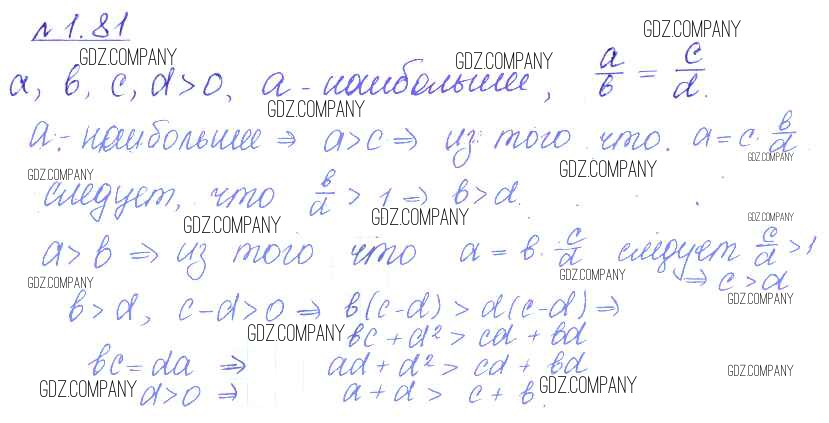 №1.81
GDZ.COMPANY GDZ.COMPANY GDZ.COMPANY
a, b, c, d>0, a - наибольшее, a/b = c/d.
GDZ.COMPANY
a - наибольшее ⇒ a>c ⇒ из того что a = c · b/d
GDZ.COMPANY GDZ.COMPANY GDZ.COMPANY
следует, что b/d > 1 ⇒ b>d.
GDZ.COMPANY GDZ.COMPANY GDZ.COMPANY
a>b ⇒ из того что a = b · c/d следует c/d >1
GDZ.COMPANY GDZ.COMPANY
⇒ c>d
b>d, c-d>0 ⇒ b(c-d) > d(c-d) ⇒
GDZ.COMPANY
GDZ.COMPANY bc + d² > cd + bd
bc = da ⇒ ad + d² > cd + bd
GDZ.COMPANY
GDZ.COMPANY d>0 ⇒ a + d > c + b. GDZ.COMPANY